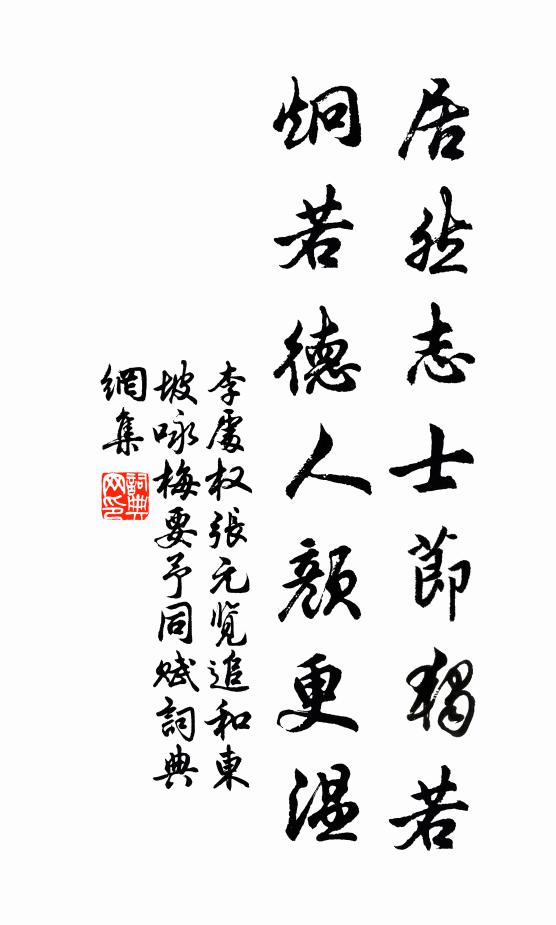 居然志士節獨苦
炯若德人顏更溫
李處权張元览追和東
坡咏梅要予同賦詞典
網集
詞典網印